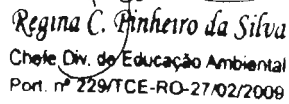 Regina C. Pinheiro da Silva
Chefe Div. de Educação Ambiental
Port. nº 229/TCE-RO-27/02/2009